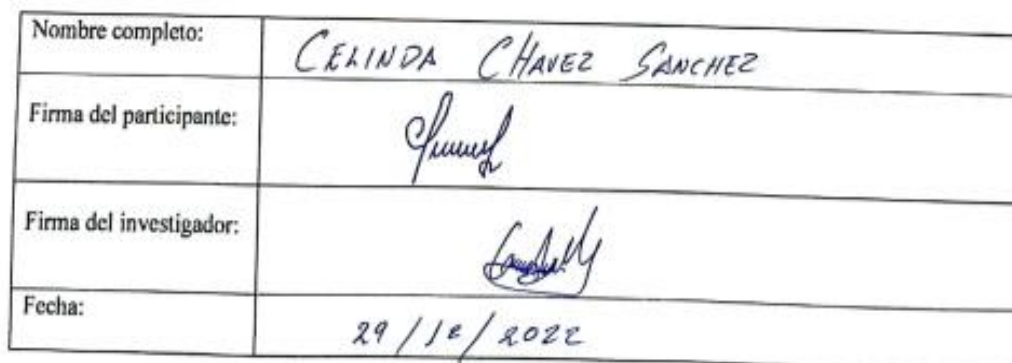 Nombre completo: CELINDA CHAVEZ SANCHEZ
Firma del participante:
Firma del investigador:
Fecha: 29/12/2022